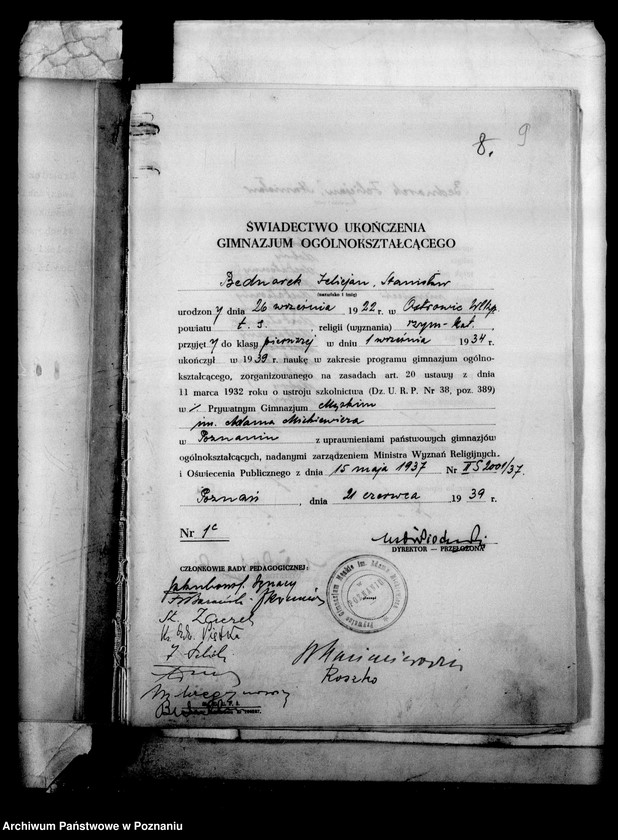 8. 9
ŚWIADECTWO UKOŃCZENIA
GIMNAZJUM OGÓLNOKSZTAŁCĄCEGO
Bednarek Felicjan, Stanisław
(nazwisko i imię)
urodzony dnia 26 września 1922 r. w Ostrowie Wlkp.
powiatu t. s., religii (wyznania) rzym-kat.,
przyjęty do klasy pierwszej w dniu 1 września 1934 r.
ukończył w 1939 r. naukę w zakresie programu gimnazjum ogólno-
kształcącego, zorganizowanego na zasadach art. 20 ustawy z dnia
11 marca 1932 roku o ustroju szkolnictwa (Dz. U. R. P. Nr 38, poz. 389)
w Prywatnym Gimnazjum Męskim
im. Adama Mickiewicza
w Poznaniu z uprawnieniami państwowych gimnazjów
ogólnokształcących, nadanymi zarządzeniem Ministra Wyznań Religijnych
i Oświecenia Publicznego z dnia 15 maja 1937 Nr II S 2001/37.
Poznań, dnia 21 czerwca 1939 r.
Nr 1c
DYREKTOR — PRZEŁOŻONA
CZŁONKOWIE RADY PEDAGOGICZNEJ:
Prywatne Gimnazjum Męskie im. Adama Mickiewicza
w Poznaniu
Roszko
Archiwum Państwowe w Poznaniu